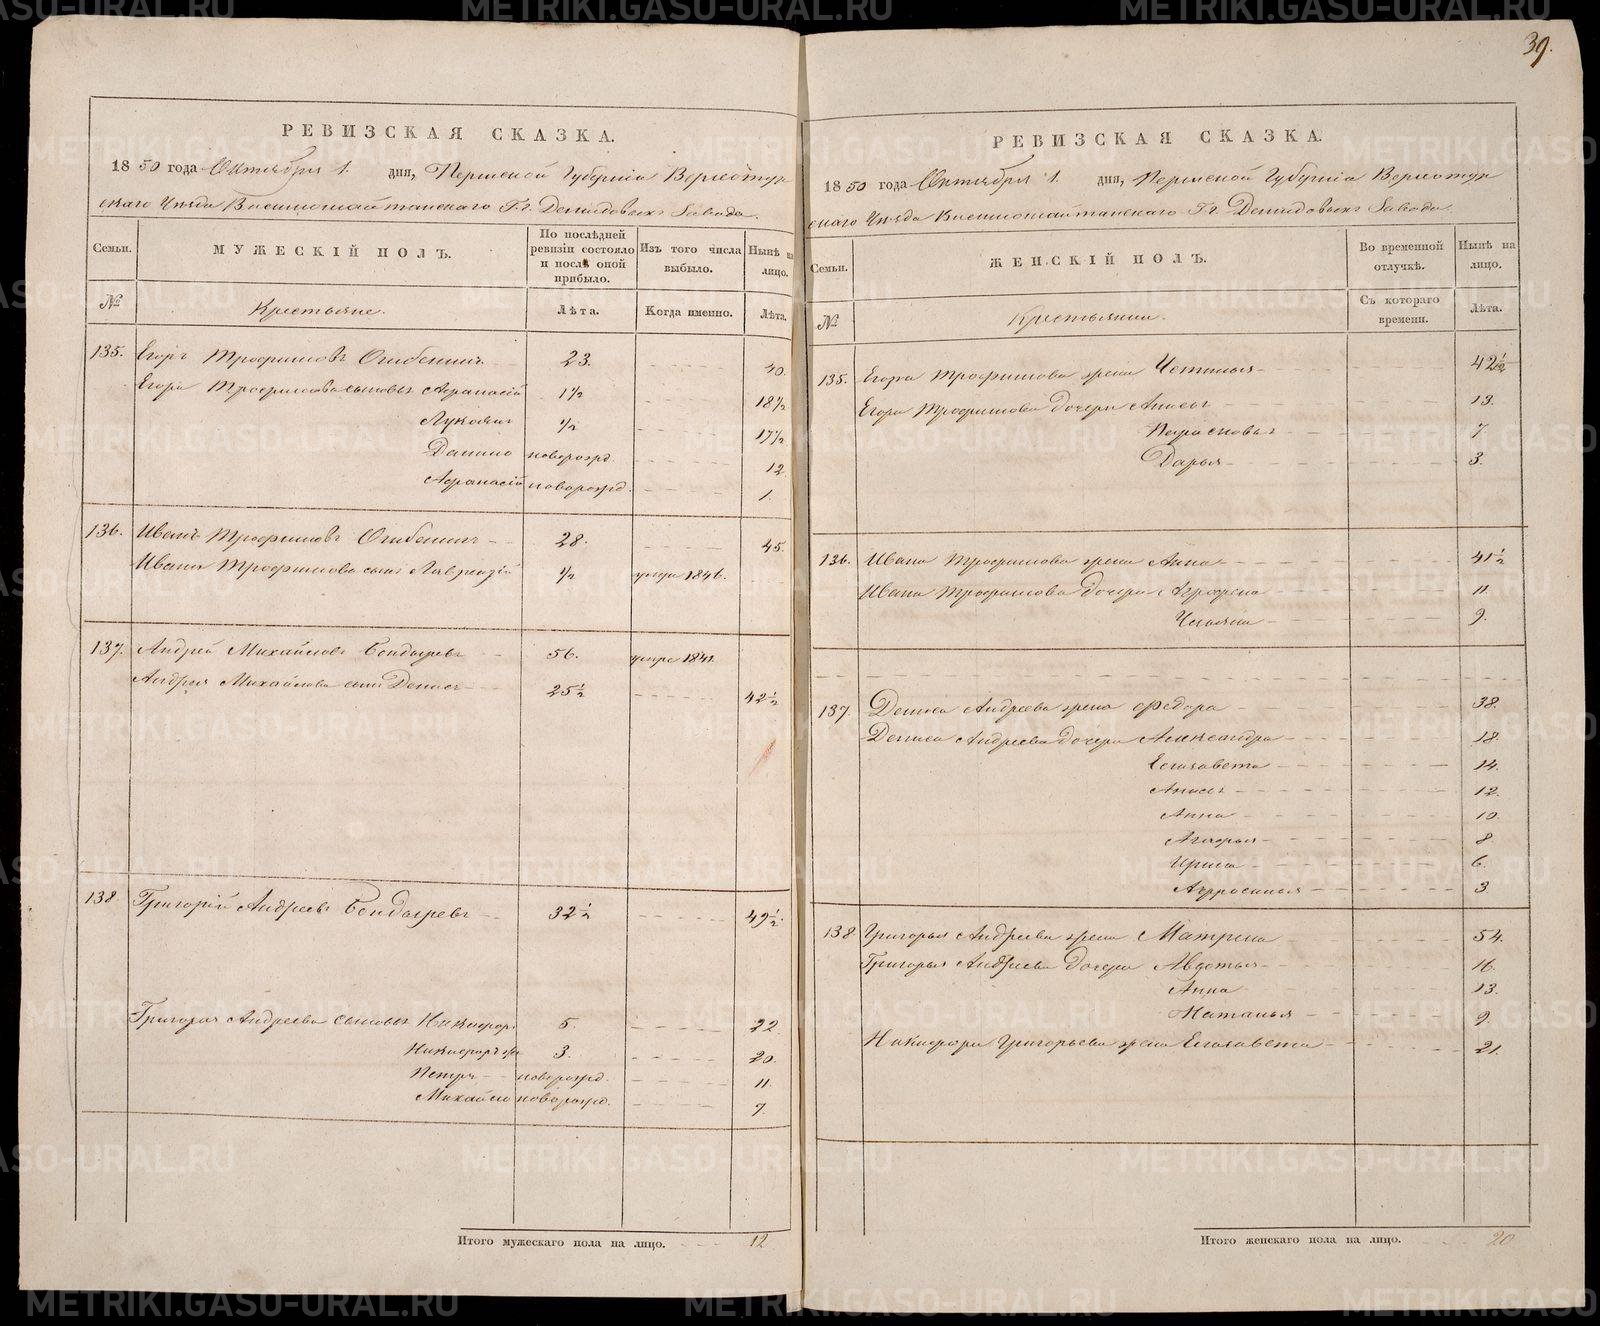 39.
РЕВИЗСКАЯ СКАЗКА.
1850 года Октября 1. дня, Пермской Губернiи Верхотур
скаго Уѣзда Висимошайтанскаго Г.г. Демидовыхъ Завода.
Семьи.
МУЖЕСКІЙ ПОЛЪ.
По послѣдней ревизіи состояло и послѣ оной прибыло.
Изъ того числа выбыло.
Нынѣ на лицо.
№
Крестьяне.
Лѣта.
Когда именно.
Лѣта.
135. Егоръ Трофимовъ Огибенинъ 23. 40.
Егора Трофимова сыновья Афанасій 1½ 18½
½ 17½
новорожд. 12
Афанасій новорожд. 1.
136. Иванъ Трофимовъ Огибенинъ 28. 45.
Ивана Трофимова сынъ Лаврентій ½ умре 1846.
137. Андрей Михайловъ Бондыревъ 56. умре 1841.
Андрея Михайлова сынъ Денисъ 25½ 42½
138. Григорій Андреевъ Бондыревъ 32½ 49½.
Григорья Андреева сыновья Никифоръ 5. 22
Никифоръ 3. 20.
Петръ новорожд. 11.
Михайло новорожд. 7.
Итого мужескаго пола на лицо. 12
РЕВИЗСКАЯ СКАЗКА.
1850 года Октября 1. дня, Пермской Губернiи Верхотур
скаго Уѣзда Висимошайтанскаго Г.г. Демидовыхъ Завода.
Семьи.
ЖЕНСКІЙ ПОЛЪ.
Во временной отлучкѣ.
Нынѣ на лицо.
№
Крестьянки.
Съ котораго времени.
Лѣта.
135. Егора Трофимова жена 42½
Егора Трофимова дочери Анисья 13.
Парасковья 7
Дарья 3.
136. Ивана Трофимова жена Анна 41½
Ивана Трофимова дочери Аграфена 11.
Ульяна 9.
137. Дениса Андреева жена Федора 38.
Дениса Андреева дочери Александра 18.
Елизавета 14.
Анисья 12.
Анна 10.
8
Ирина 6.
3.
138 Григорья Андреева жена Матрена 54.
Григорья Андреева дочери Авдотья 16.
Анна 13.
Наталья 9.
Никифора Григорьева жена Елизавета 21.
Итого женскаго пола на лицо. 20
METRIKI.GASO-URAL.RU